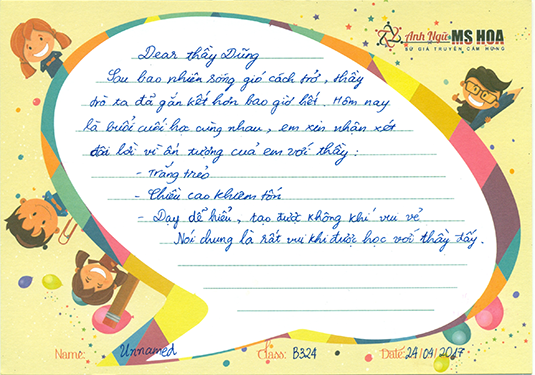 Anh Ngữ MS HOA
SỨ GIẢ TRUYỀN CẢM HỨNG
Dear thầy Dũng
Sau bao nhiên sóng gió cách trở, thầy
trò ta đã gắn kết hơn bao giờ hết. Hôm nay
là buổi cuối học cùng nhau, em xin nhận xét
đôi lời về ấn tượng cuả em với thầy :
- Trắng trẻo
- Chiều cao khiêm tốn
- Dạy dễ hiểu, tạo được không khí vui vẻ
Nói chung là rất vui khi được học với thầy đấy.
Name: Unnamed Class: B324 Date: 24/04/2017